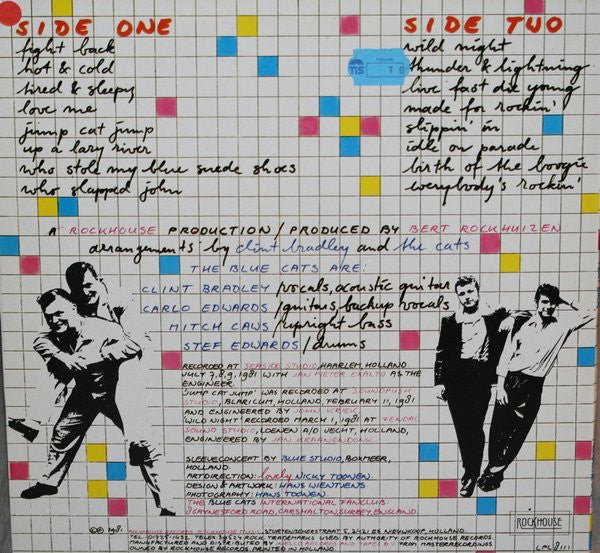 SIDE ONE
fight back
hot & cold
tired & sleepy
love me
jump cat jump
up a lazy river
who stole my blue suede shoes
who slapped john
SIDE TWO
wild night
thunder & lightning
live fast die young
made for rockin'
slippin' in
idle on parade
birth of the boogie
everybody's rockin'
TIS
A ROCKHOUSE PRODUCTION / PRODUCED BY BERT ROCKHUIZEN
arrangements by clint bradley and the cats
THE BLUE CATS ARE:
CLINT BRADLEY / vocals, acoustic guitar
CARLO EDWARDS / guitars, backup vocals
MITCH CAWS / upright bass
STEF EDWARDS / drums
RECORDED AT SEASIDE STUDIO, HAARLEM, HOLLAND
JULY 7, 8, 9, 1981 WITH JAN PIETER EXALTO AS THE
ENGINEER.
'JUMP CAT JUMP' WAS RECORDED AT SOUNDPUSH
STUDIO, BLARICUM, HOLLAND, FEBRUARY 11, 1981
AND ENGINEERED BY JOHN KRIEK.
'WILD NIGHT' RECORDED MARCH 1, 1981 AT KENDAL
SOUND STUDIO, LOENEN A/D VECHT, HOLLAND,
ENGINEERED BY JAN KRANENDONK.
SLEEVECONCEPT BY BLUE STUDIO, BOXMEER,
HOLLAND.
ARTDIRECTION: lovely NICKY TOONEN.
DESIGN & ARTWORK: HANS WIENTJENS
PHOTOGRAPHY: HANS TOONEN.
THE BLUE CATS INTERNATIONAL FANCLUB:
GAYNESFORD ROAD, CARSHALTON, SURREY, ENGLAND.
℗ © 1981 NIEUWKOOP, HOLLAND.
TRADEMARKS USED BY AUTHORITY OF ROCKHOUSE RECORDS.
MANUFACTURED AND DISTRIBUTED BY FROM MASTERRECORDINGS
OWNED BY ROCKHOUSE RECORDS. PRINTED IN HOLLAND.
ROCKHOUSE
LPL 8111